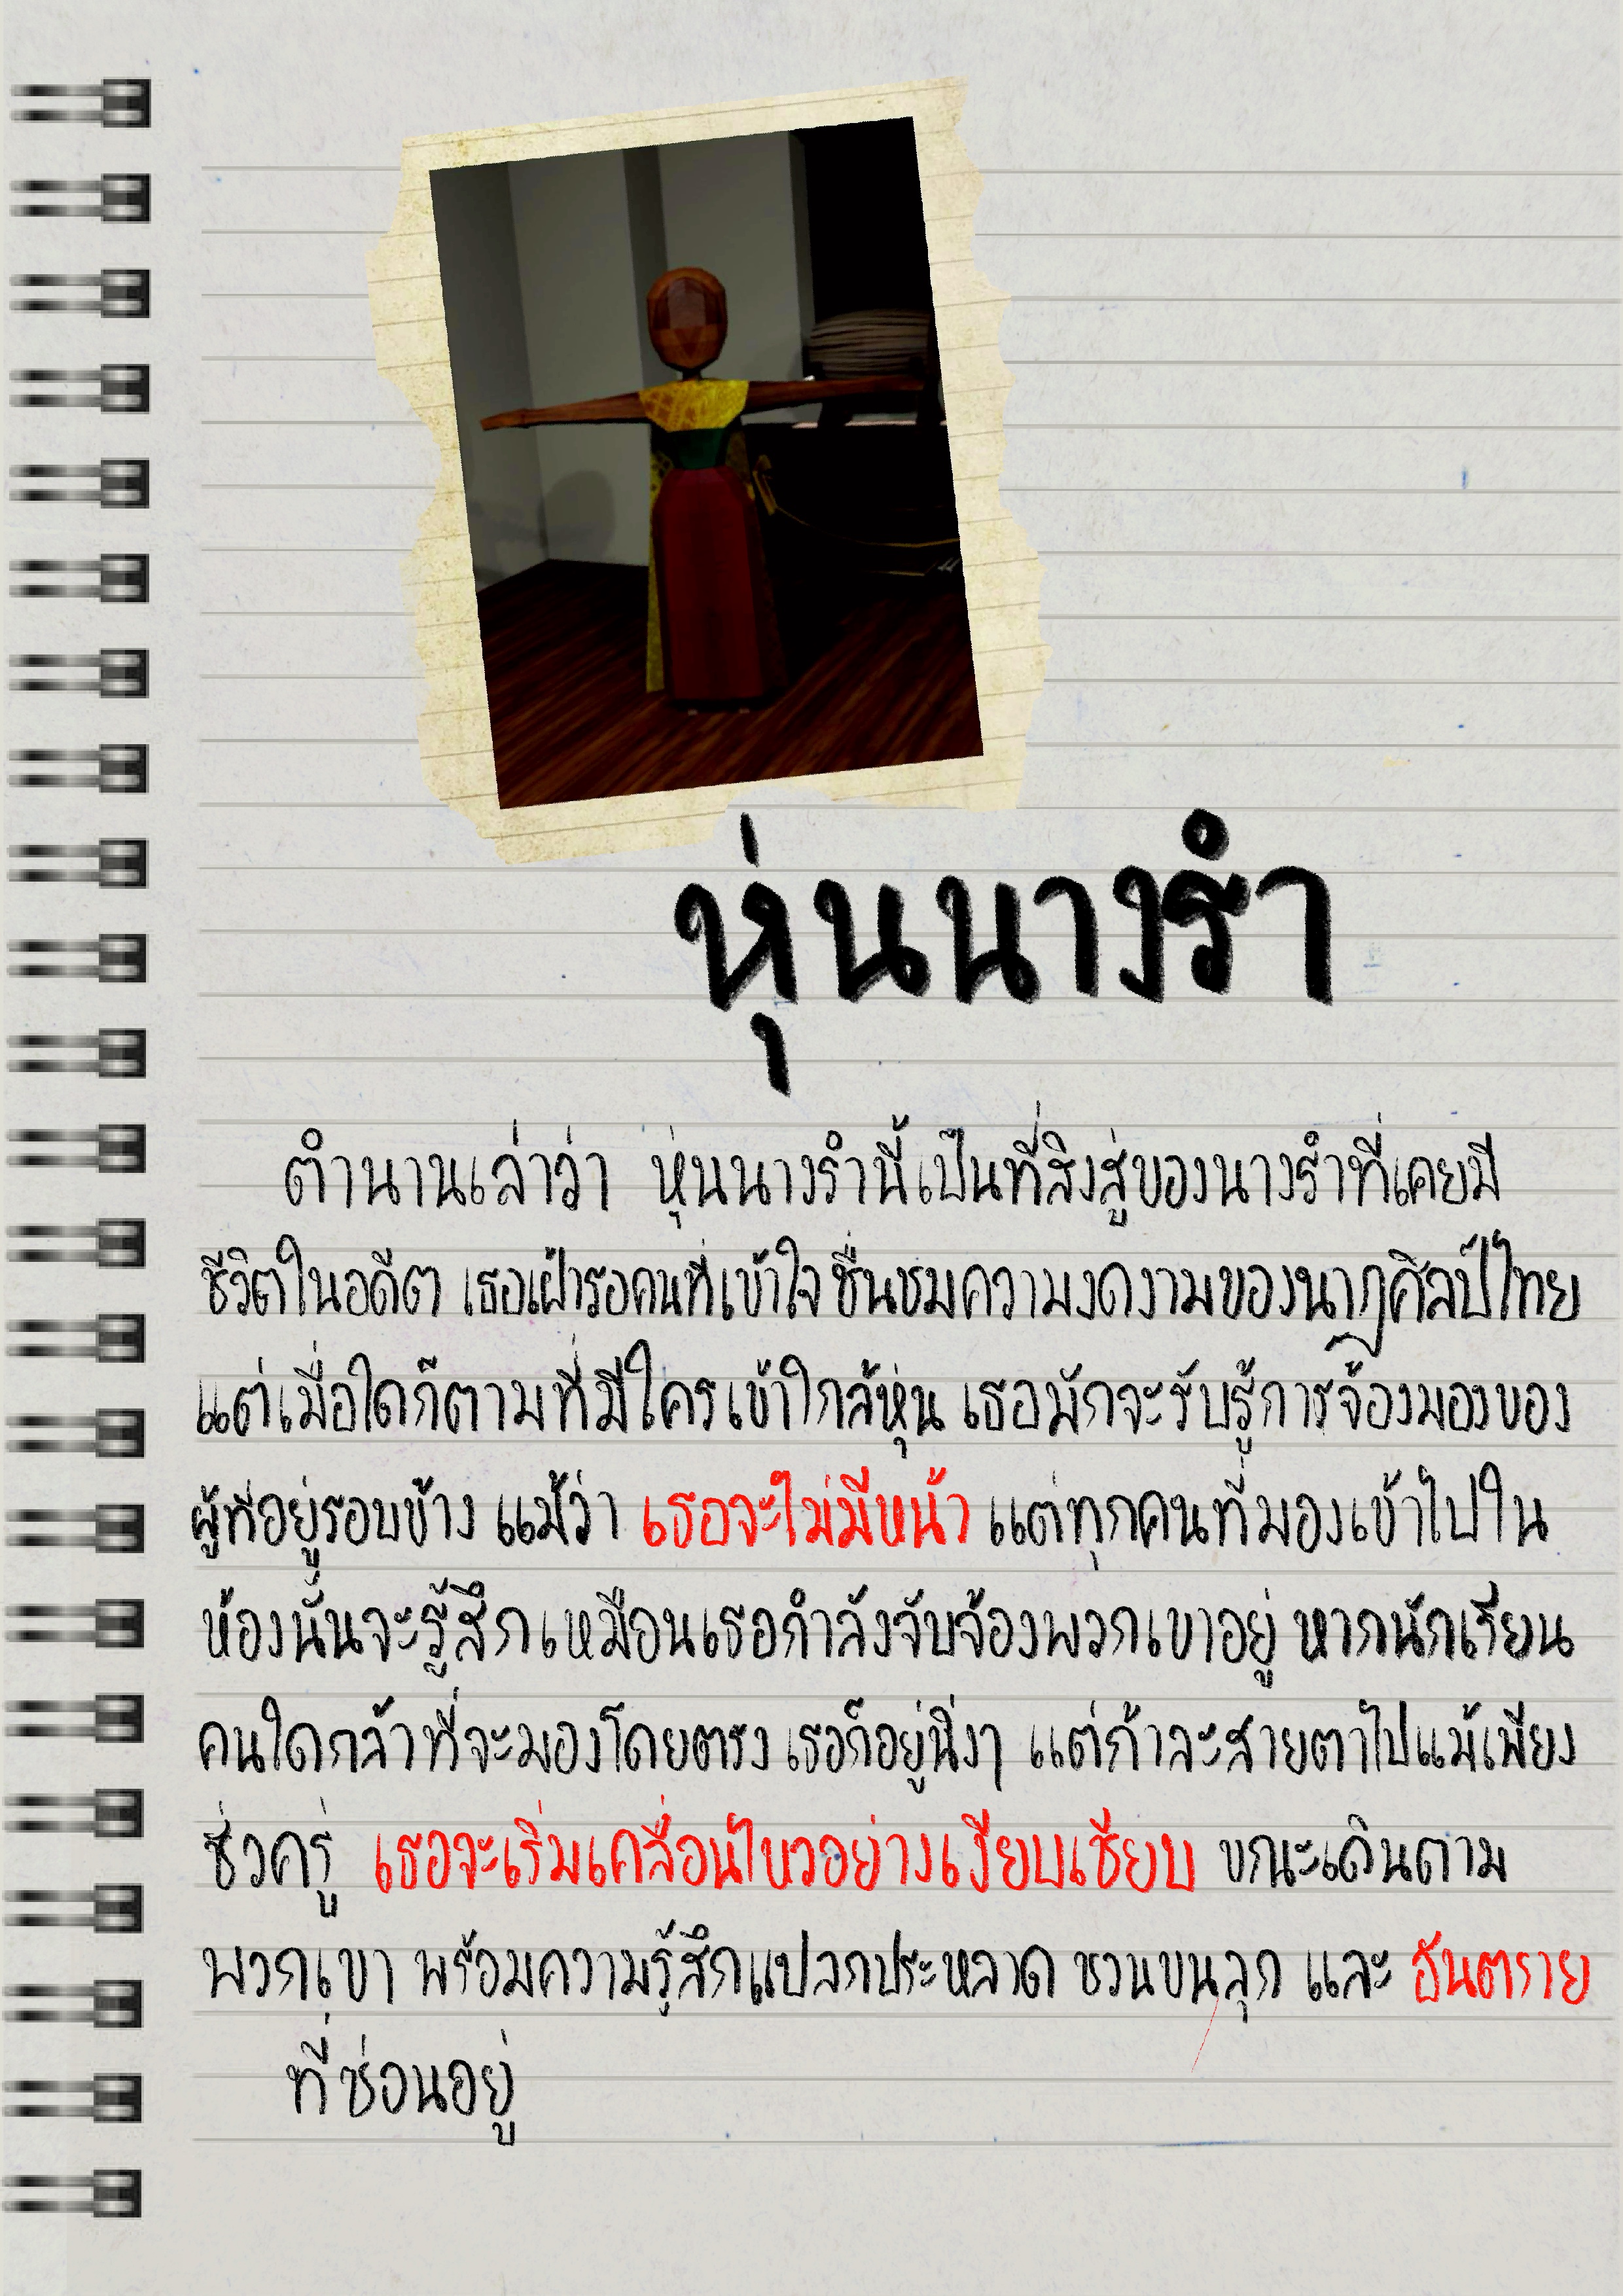 หุ่นนางรำ
ตำนานเล่าว่า หุ่นนางรำนี้เป็นที่สิงสู่ของนางรำที่เคยมี
ชีวิตในอดีต เธอเฝ้ารอคนที่เข้าใจ ชื่นชมความงดงามของนาฏศิลป์ไทย
แต่เมื่อใดก็ตามที่มีใครเข้าใกล้หุ่น เธอมักจะรับรู้การจ้องมองของ
ผู้ที่อยู่รอบข้าง แม้ว่า เธอจะไม่มีหน้า แต่ทุกคนที่มองเข้าไปใน
ห้องนั้นจะรู้สึกเหมือนเธอกำลังจับจ้องพวกเขาอยู่ หากนักเรียน
คนใดกล้าที่จะมองโดยตรง เธอก็อยู่นิ่งๆ แต่ถ้าละสายตาไปแม้เพียง
ชั่วครู่ เธอจะเริ่มเคลื่อนไหวอย่างเงียบเชียบ ขณะเดินตาม
พวกเขา พร้อมความรู้สึกแปลกประหลาด ชวนขนลุก และ อันตราย
ที่ซ่อนอยู่